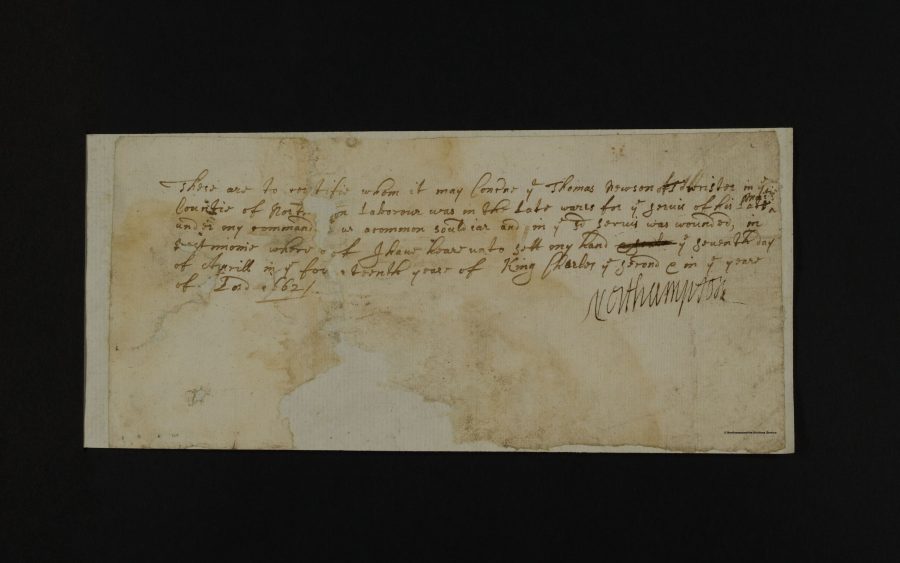 These are to certifie whom it may Concrne yt Thomas Newson of in ye
Countie of Labourour was in the Late warrs for ye servis of his Late Matie
under my command as acommon souldiar and in ye sd servis was wounded, in
testimonie where of I have heare unto sett my hand ye seventh day
of Aprill in ye teenth yeare of King Charles ye second & in ye yeare
of Lord 1662
Northampton
© Northamptonshire Archives Service